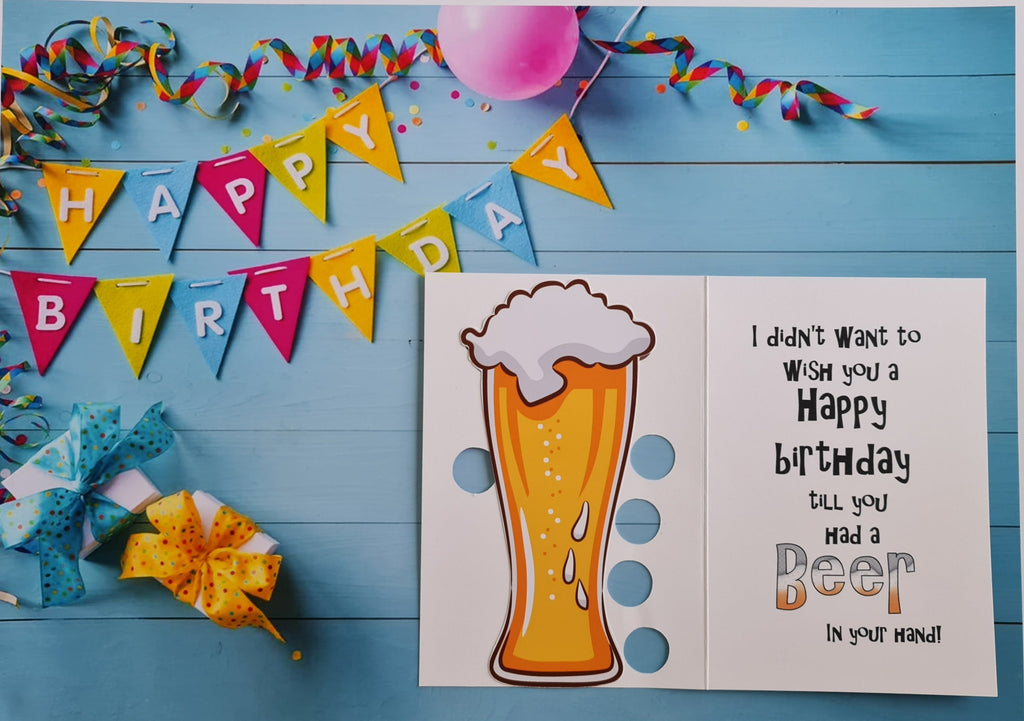 HAPPY
BIRTHDAY
I didn't want to
wish you a
Happy
birthday
till you
had a
Beer
in your hand!